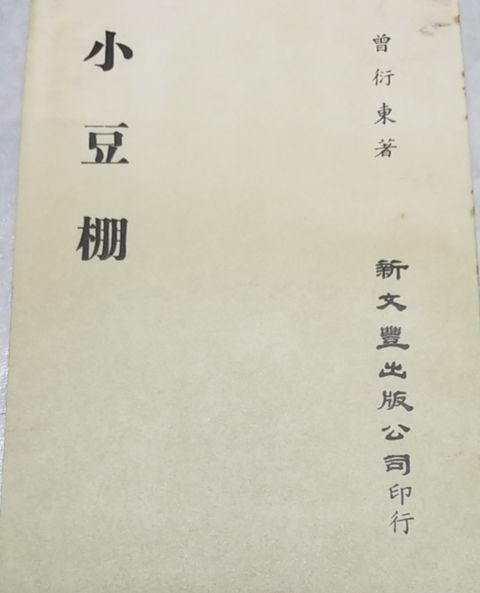 曾衍東著
新文豐出版公司印行
小豆棚